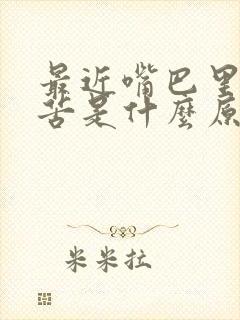 最近嘴巴里
苦是什麼原
米米拉